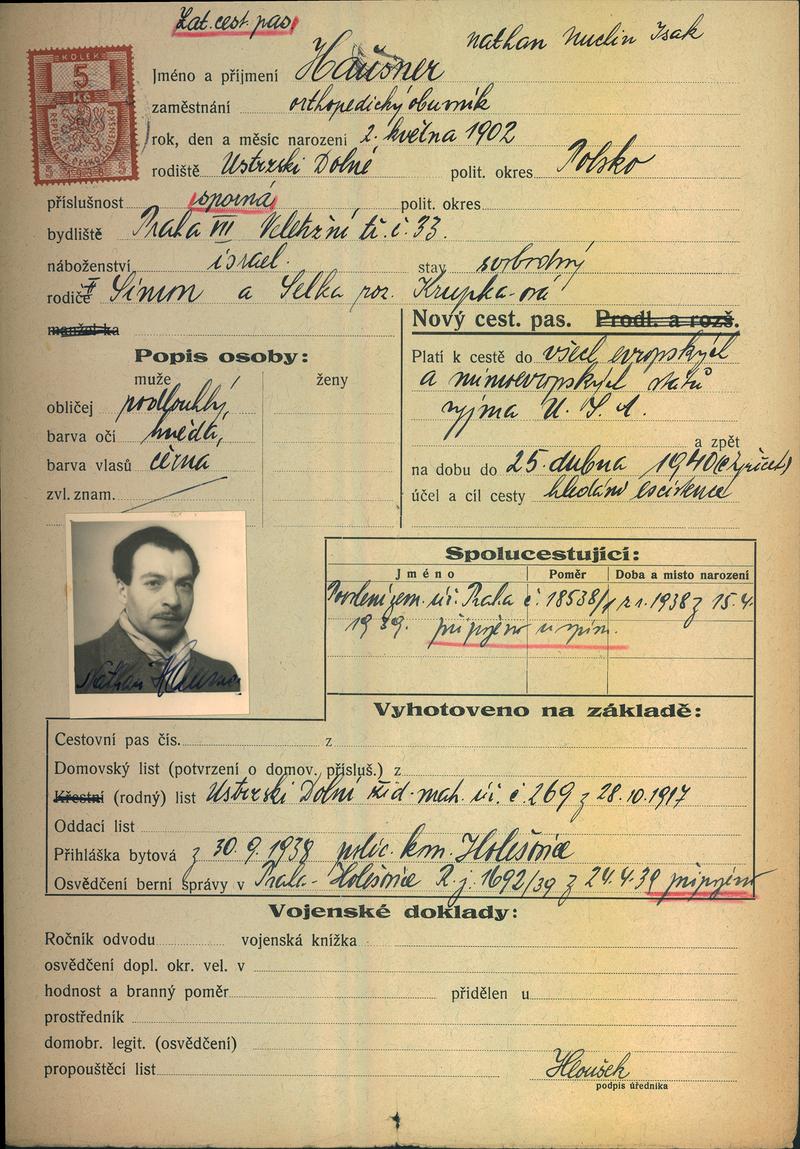 Zat. cest. pas.
Nathan Nuchin Isak
KOLEK
5
Kč
REPUBLIKA ČESKOSLOVENSKÁ
Jméno a příjmení Hausner
zaměstnání orthopedický obuvník
rok, den a měsíc narození 2. května 1902
rodiště Ustrzski Dolné polit. okres Polsko
příslušnost sporná polit. okres
bydliště Praha VII Veletržní tř. č. 33.
náboženství israel. stav svobodný
rodiče Simon a Selka roz. Krupka-ová
manžel-ka
Nový cest. pas. Prodl. a rozš.
Popis osoby:
muže ženy
obličej podlouhlý,
barva očí hnědá,
barva vlasů černá
zvl. znam.
Platí k cestě do všech evropských
a mimoevropských států
vyjma U. S. A.
a zpět
na dobu do 25. dubna 1940
účel a cíl cesty hledání existence
Nathan Hausner
Spolucestující:
Jméno Poměr Doba a místo narození
Povolení zem. úř. Praha č. 18538/ z r. 1938 z 15.4.
1939. připojeno u spisu.
Vyhotoveno na základě:
Cestovní pas čís. z
Domovský list (potvrzení o domov. přísluš.) z
Křestní (rodný) list Ustrzski Dolní žid. mat. úř. č. 269 z 28.10.1917
Oddací list
Přihláška bytová z 30. 9. 1938 polic. kom. Holešovice
Osvědčení berní správy v Praha-Holešovice R. j. 1692/39 z 24.4.39 připojeno
Vojenské doklady:
Ročník odvodu vojenská knížka
osvědčení dopl. okr. vel. v
hodnost a branný poměr přidělen u
prostředník
domobr. legit. (osvědčení)
propouštěcí list
Hloušek
podpis úředníka